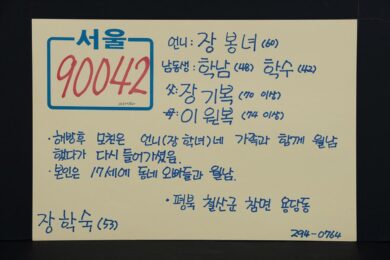 서울
90042
언니: 장봉녀 (60)
남동생: 학남 (48) 학수 (42)
父: 장기복 (70 이상)
母: 이원복 (74 이상)
· 해방후 모친은 언니(장학녀)네 가족과 함께 월남
했다가 다시 들어가셨음.
· 본인은 17세에 동네 오빠들과 월남.
· 평북 철산군 참면 용당동
장학숙 (53)
294-0764